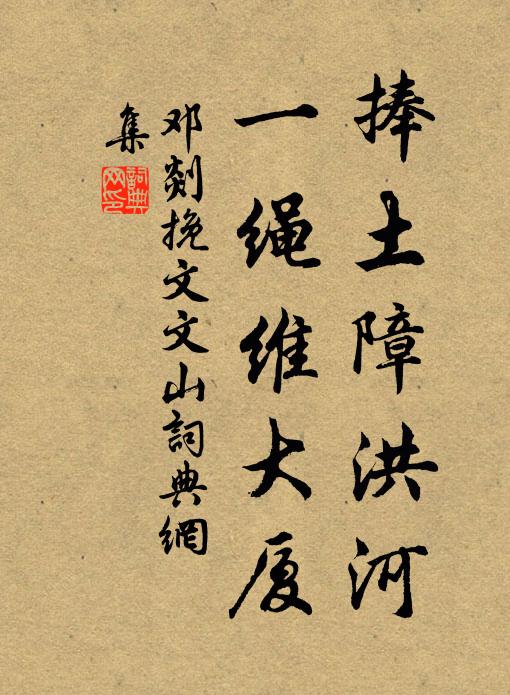 捧土障洪河
一绳维大厦
邓剡挽文文山詞典網
集
詞典网印